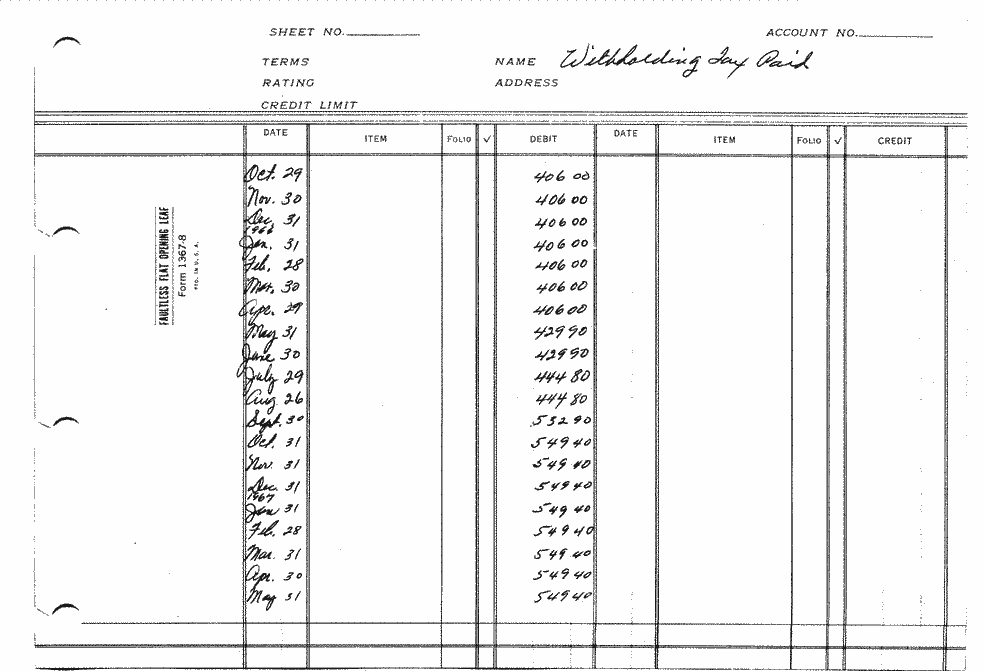 SHEET NO. ACCOUNT NO.
TERMS NAME Withholding Tax Paid
RATING ADDRESS
CREDIT LIMIT
DATE ITEM FOLIO ✓ DEBIT DATE ITEM FOLIO ✓ CREDIT
Oct. 29 406 00
Nov. 30 406 00
Dec. 31 406 00
1966
Jan. 31 406 00
Feb. 28 406 00
Mar. 30 406 00
Apr. 29 406 00
May 31 429 90
June 30 429 90
July 29 444 80
Aug 26 444 80
Sept. 30 532 90
Oct. 31 549 40
Nov. 31 549 40
Dec. 31 549 40
1967
Jan 31 549 40
Feb. 28 549 40
Mar. 31 549 40
Apr. 30 549 40
May 31 549 40
FAULTLESS FLAT OPENING LEAF
Form 1367-8
PTD. IN U.S.A.